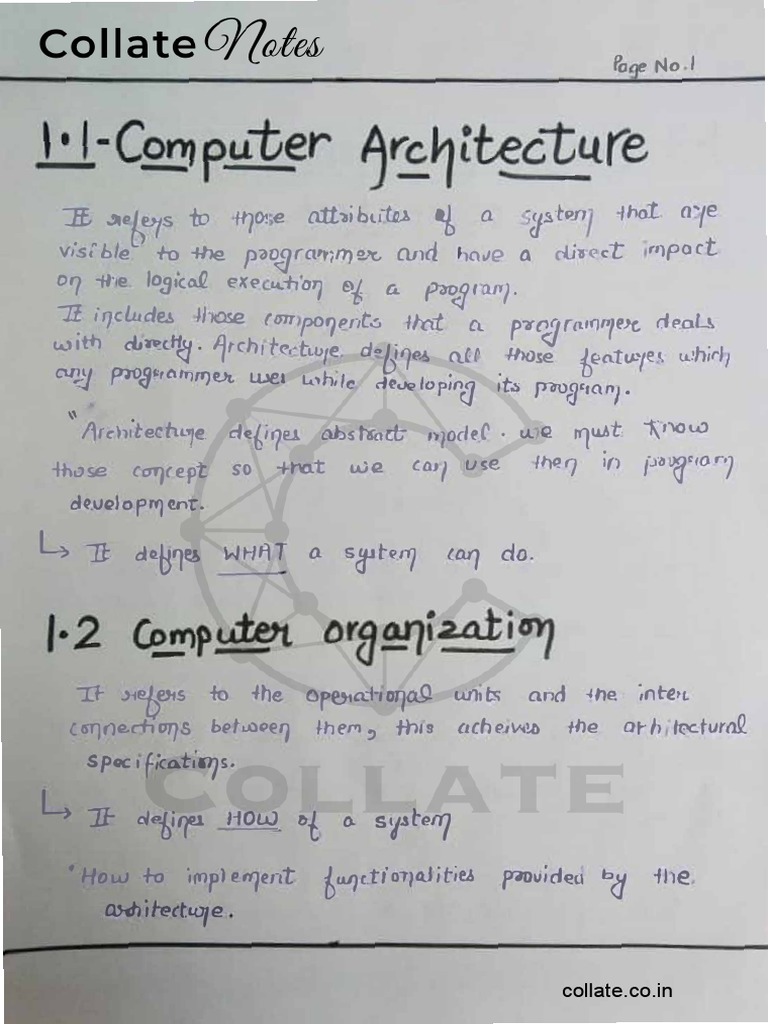 Collate Notes
Page No.1
1.1-Computer Architecture
It refers to those attributes of a system that are
visible to the programmer and have a direct impact
on the logical execution of a program.
It includes those components that a programmer deals
with directly. Architecture defines all those features which
any programmer uses while developing its program.
"Architecture defines abstract model. we must know
those concept so that we can use then in program
development.
↳ It defines WHAT a system can do.
1.2 Computer organization
It refers to the operational units and the inter
connections between them, this acheives the arhitectural
specifications.
COLLATE
↳ It defines HOW of a system
"How to implement functionalities provided by the
architecture.
collate.co.in